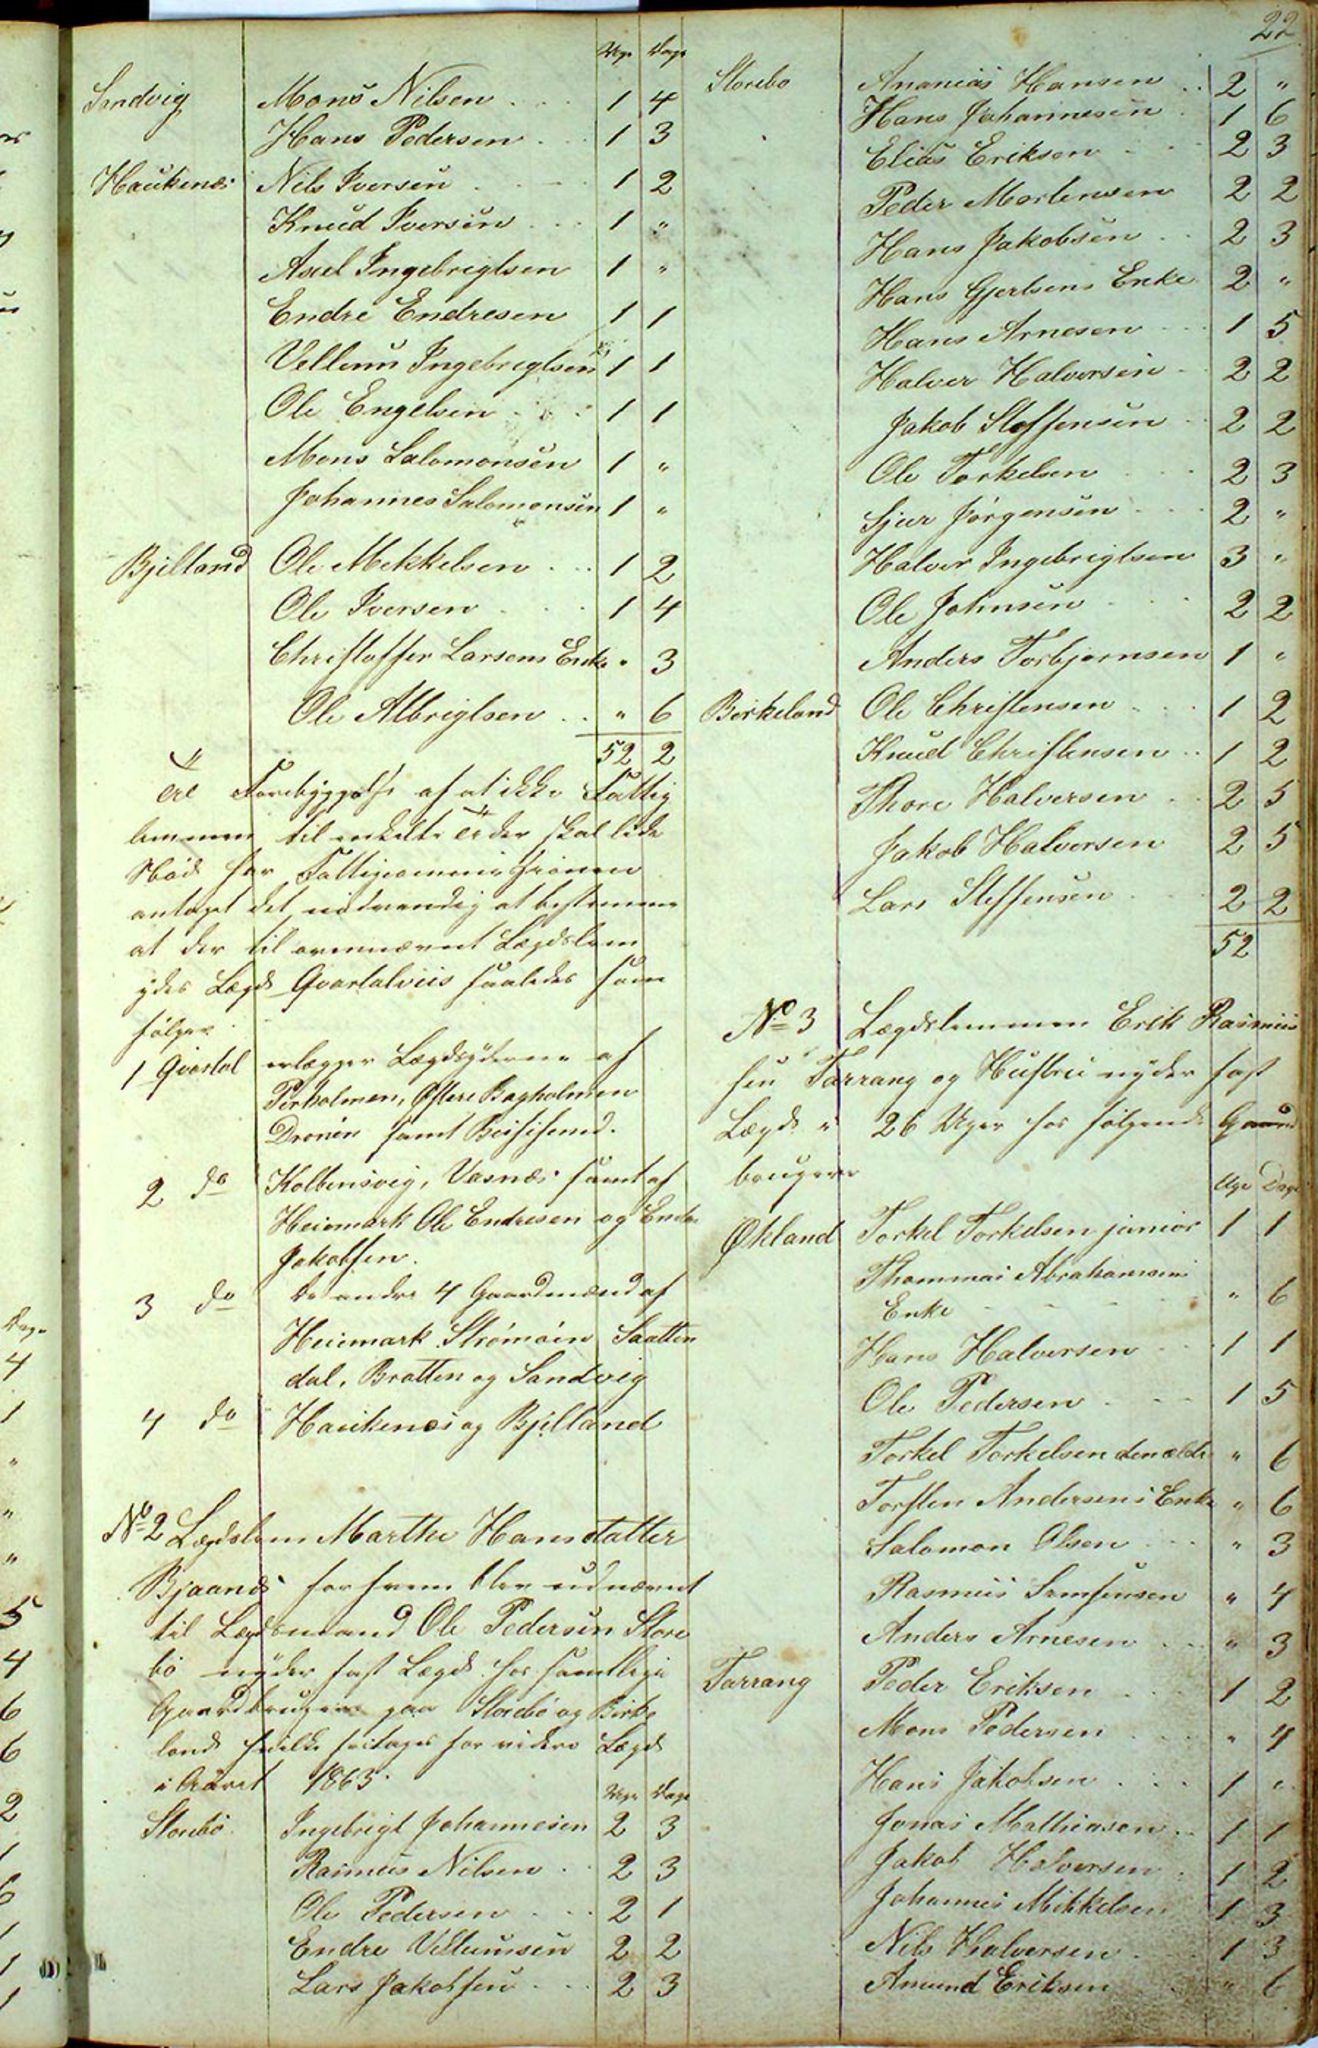 22
Uge Dage
Sandvig Mons Nilsen 1 4
Hans Pedersen 1 3
Haukenæs Nils Iversen 1 2
Knud Iversen 1 "
Axel Ingebrigtsen 1 "
Endre Endresen 1 1
Vellum Ingebrigtsen 1 1
Ole Engelsen 1 1
Mons Salomonsen 1 "
Johannes Salomonsen 1 "
Bjelland Ole Mikkelsen 1 2
Ole Iversen 1 4
Christoffer Larsens Enke " 3
Ole Albrigtsen " 6
52 2
Til Forebyggelse af at ikke Fattig
lemmer til enkelte Tider skal lide
Nöd har Fattigcommissionen
antaget det nödvendig at bestemme
at der til ovennævnt Lægdslem
ydes Lægd Qvartalviis saaledes som
fölger
1 Qvartal erlægger Lægdsyderne af
Perholmen, Östre Bagholmen
Dronen samt
2 do Kolbensvig, Vasnæs samt af
Heiemark Ole Endresen og Endre
Jakobsen.
3 do De andre 4 Gaardmænd af
Heiemark Strömöen Saatten
dal, Bratten og Sandvig
4 do Haukenæs og Bjelland
No 2 Lægdslem Marthe Hansdatter
Bjaanæs for hvem blev udnævnt
til Lægdsmand Ole Pedersen Store
bö nyder fast Lægd hos samtlige
Gaardbrugere paa Storebö og Birke
land hvilke fritages for videre Lægd
i Aaret 1863.
Uge Dage
Storebö Ingebrigt Johannesen 2 3
Rasmus Nilsen 2 3
Ole Pedersen 2 1
Endre Vellumsen 2 2
Lars Jakobsen 2 3
Storebo Ananias Hansen 2 "
Hans Johannesen 1 6
Elias Eriksen 2 3
Peder Mortensen 2 2
Hans Jakobsen 2 3
Hans Gjertsens Enke 2 "
Hans Arnesen 1 5
Halver Halversen 2 2
Jakob Steffensen 2 2
Ole Torkelsen 2 3
Sjur Jörgensen 2 "
Halver Ingebrigtsen 3 "
Ole Johnsen 2 2
Anders Torbjørnsen 1 "
Birkeland Ole Christensen 1 2
Knud Christensen 1 2
Thore Halversen 2 5
Jakob Halversen 2 5
Lars Steffensen 2 2
52
No 3 Lægdslemmen Erik Rasmus
sen Tarrang og Hustru nyder fast
Lægd i 26 Uger hos fölgende Gaard
brugere
Uge Dage
Økland Torkel Torkelsen junior 1 1
Thommas Abrahamsens
Enke " 6
Hans Halversen 1 1
Ole Pedersen 1 5
Torkel Torkelsen den ældre " 6
Torsten Andersens Enke " 6
Salomon Olsen " 3
Rasmus Samsonsen " 4
Anders Arnesen " 3
Tarrang Peder Eriksen 1 2
Mons Pedersen " 4
Hans Jakobsen 1 "
Jonas Mathiasen 1 1
Jakob Halversen 1 2
Johannes Mikkelsen 1 3
Nils Halversen 1 3
Amund Eriksen " 6